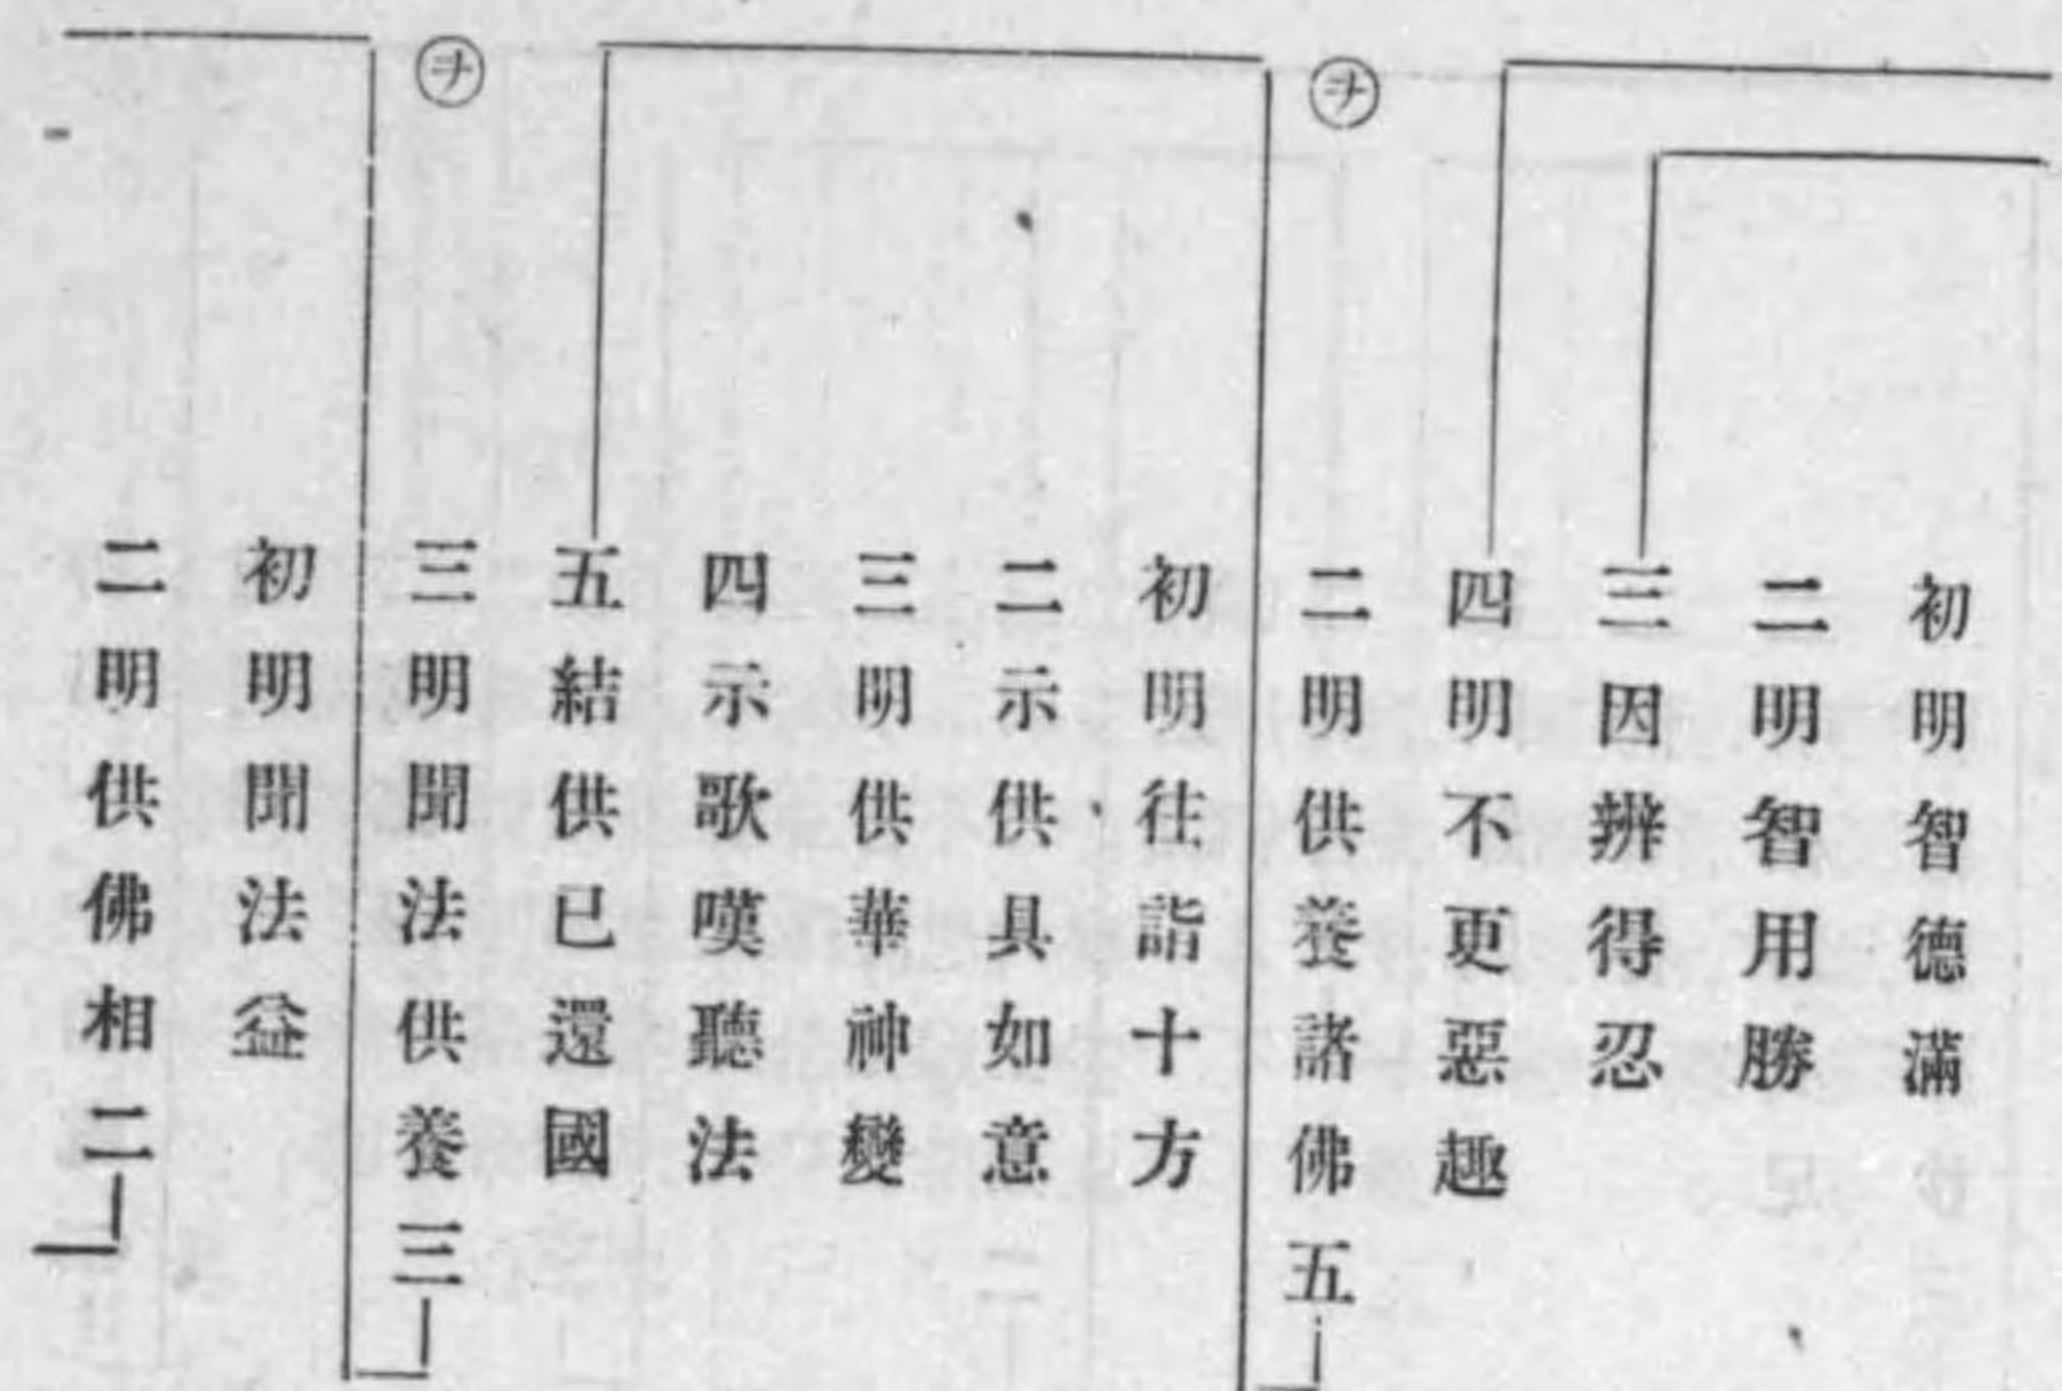 初明智德滿
二明智用勝
三因辨得忍
四明不更惡趣
㋾
二明供養諸佛五
初明往詣十方
二示供具如意
三明供華神變
四示歌嘆聽法
五結供已還國
㋾
三明聞法供養三
初明聞法益
二明供佛相二